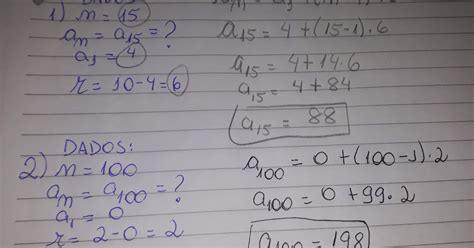 1) n = 15
an = a15 = ?
a1 = 4
r = 10-4 = 6
a15 = 4 + (15-1).6
a15 = 4 + 14.6
a15 = 4 + 84
a15 = 88
DADOS:
2) n = 100
an = a100 = ?
a1 = 0
r = 2-0 = 2
a100 = 0 + (100-1).2
a100 = 0 + 99.2
a100 = 198